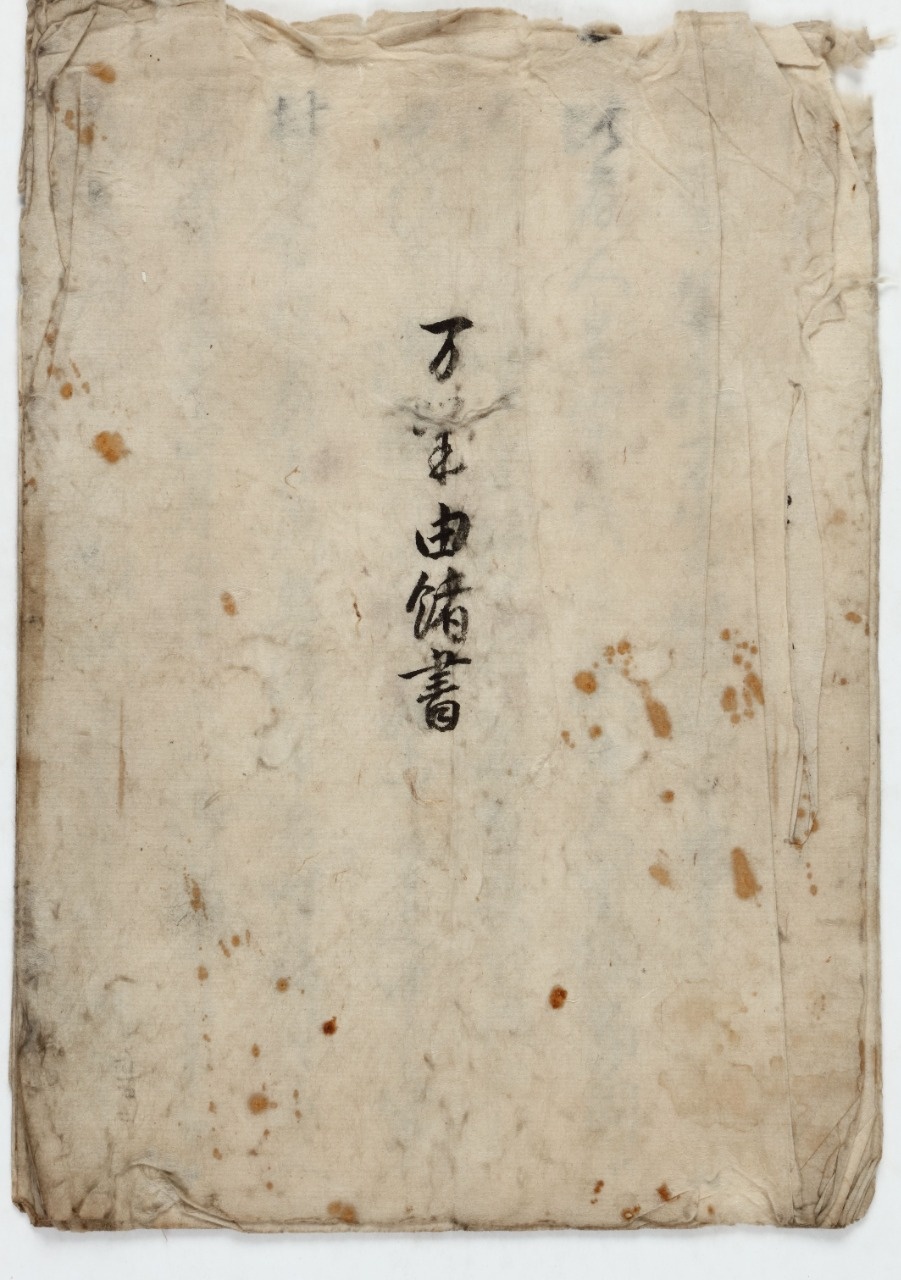 万業由緒書